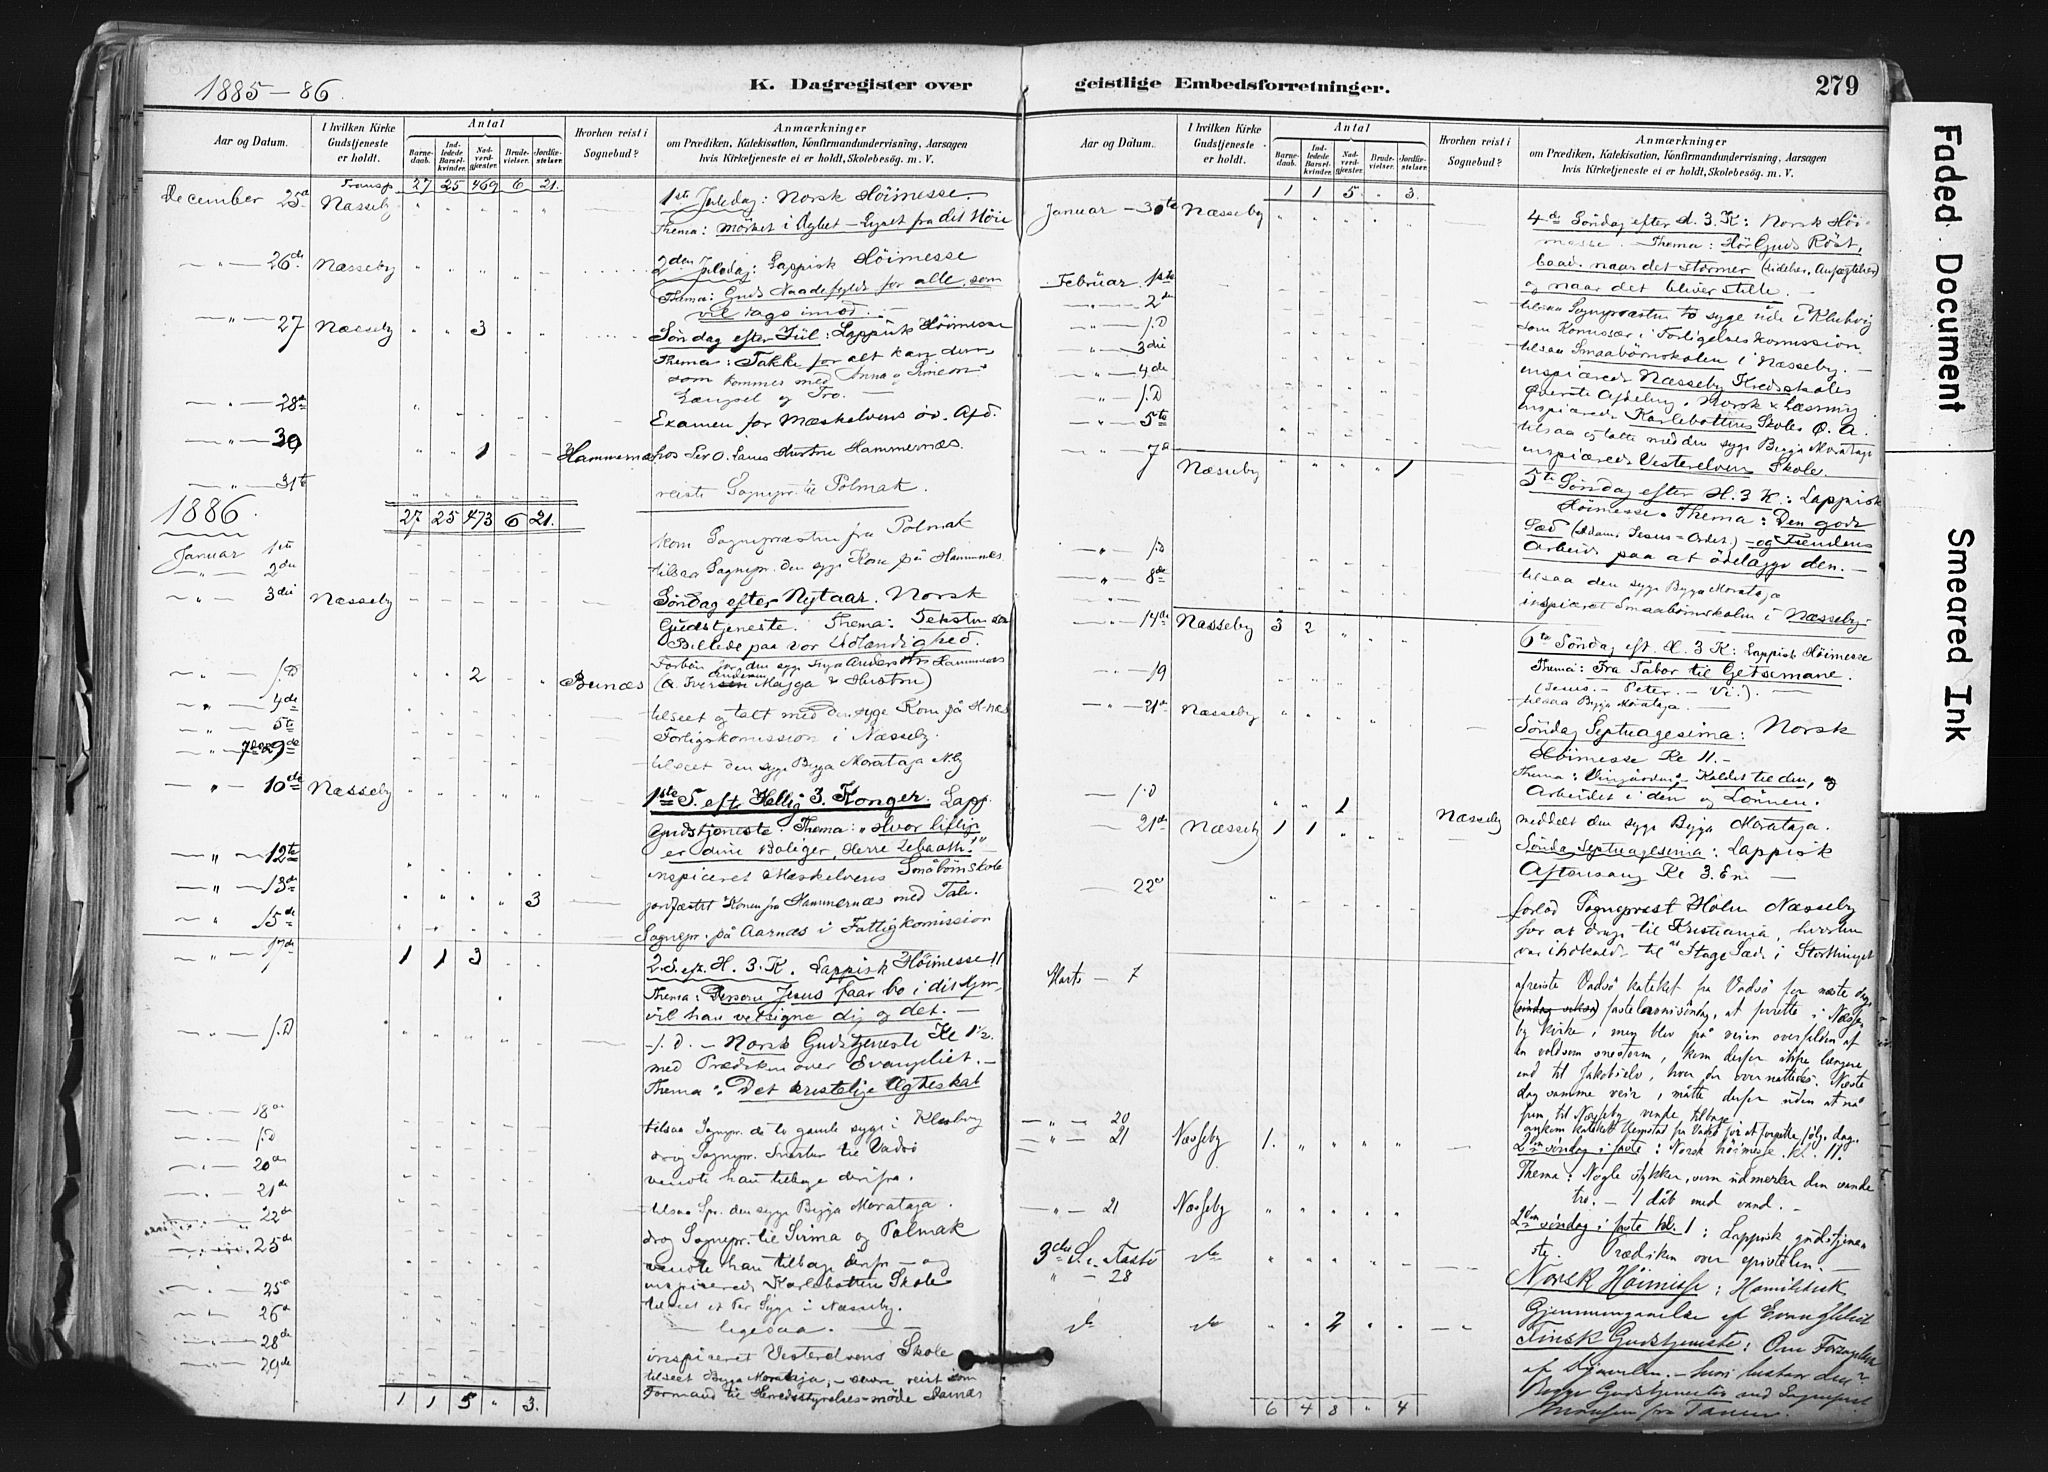 1885-86.
K. Dagregister over
geistlige Embedsforretninger.
279
Aar og Datum.
I hvilken Kirke Gudstjeneste er holdt.
Antal
Barnedaab.
Indledede Barselkvinder.
Nadverdgjester.
Brudevielser.
Jordfæstelser.
Hvorhen reist i Sognebud?
Anmærkninger
om Prædiken, Katekisation, Konfirmandundervisning, Aarsagen
hvis Kirketjeneste ei er holdt, Skolebesøg. m. V.
Transp. 27 25 469 6 21.
December 25de Næsseby 1ste Juledag: Norsk Höimesse.
Thema: Mörket i Lyset fra det Höie
" 26de Næsseby 2den Juledag: Lappisk Höimesse
Thema: Guds Naadefylde for alle, som
vil tage imod.
" 27 Næsseby 3 Söndag efter Jül: Lappisk Höimesse
Thema: Takke for alt kan den,
som kommer med Anna og Simeons
Længsel og Tro.
" 28de Examen for Mæskelvens öv. Afd.
" 30 1 Hammernæs hos O. Hustru Hammernæs.
" 31te reiste Sognepr. til Polmak.
1886.
27 25 473 6 21.
Januar 1ste kom Sognepræsten fra Polmak
" 2den tilsaa Sognepr. den syge Kone på Hammernæs
" 3die Næsseby Söndag efter Nytaar. Norsk
Gudstjeneste. Thema: Teksten som
Billede paa vor Udlændighed.
Forbön for den syge
" s.D. 2 Bunæs
" 4de tilseet og talt med den syge Kone på H-næs
" 5te Forligskomission i Næsseby.
" 9de tilseet den syge Bigga Morataja N.by
" 10de Næsseby 1ste S. eft Hellig 3. Konger. Lapp.
Gudstjeneste. Thema: "Hvor liflige
er dine Boliger, Herre Zebaoth."
" 12te inspiceret Mæskelvens Småbörnskole
" 13de 3 jordfæstet Konen fra Hammernæs med Tale.
" 15de Sognepr. på Aarnæs i Fattigkomission
" 17de 1 1 3 2. S. ef. H. 3. K. Lappisk Höimesse 11
Thema: Dersom Jesus faar bo i dit Hjem,
vil han velsigne dig og det.
" s.D s. d. - Norsk Gudstjeneste Kl 1½
med Prædiken over Evangeliet.
Thema: Det kristelige Ægteskab
18de tilsaa Sognepr. de to gamle syge i Klubvig
s.D drog Sognepr. til Vadsö
20de vendte han tilbage derfra.
21de tilsaa Spr. den syge Bigga Morataja.
22de drog Sognepr. til Sirma og Polmak
25de vendte han tilbage derfra - og
inspicerede Karlebottens Skole
25de tilseet et Par Syge i Næsseby.
26de ligesaa.
28de inspiceret Vesterelvens Skole
29de tilseet Bigga Morataja, reist som
Formand til Herredsstyrelses-möde
1 1 5 " 3.
Aar og Datum.
I hvilken Kirke Gudstjeneste er holdt.
Antal
Barnedaab.
Indledede Barselkvinder.
Nadverdgjester.
Brudevielser.
Jordfæstelser.
Hvorhen reist i Sognebud?
Anmærkninger
om Prædiken, Katekisation, Konfirmandundervisning, Aarsagen
hvis Kirketjeneste ei er holdt, Skolebesøg. m. V.
1 1 5 " 3.
Januar - 30te Næsseby 4de Söndag efter H. 3. K: Norsk Höi-
messe. Thema: Hör Guds Röst,
baade naar det stormer (Lidelser, Anfægtelser)
og naar det bliver stille.
Februar 1ste tilsaa Sognepræsten to syge ude i Klubvig
2de som Komissær i Forligelseskomission
s.D tilsaa Smaabörnskolen i Næsseby.
3die inspicerede Næsseby Kredsskoles
4de Överste Afdeling i Norsk & Læsning
s.D inspicerede Karlebottens Skoles Ö. A.
5te tilsaa og talte med den syge Bigga Morataja
inspicerede Vesterelven Skole.
7de Næsseby 1 5te Söndag efter H. 3 K: Lappisk
Höimesse. Thema: Den gode
Sæd (Adam. Jesus - Ordet.) - og Fiendens
Arbeide paa at ödelægge den.
s.D tilsaa den syge Bigga Morataja
8de inspiceret Smaabörnskolen i Næsseby.
14de Næsseby 3 2 6te Söndag eft. H. 3 K: Lappisk Höimesse
Thema: Fra Tabor til Getsemane.
(Jesus. - Peter. - Vi.).
19 tilsaa Bigga Morataja.
21de Næsseby Söndag Septuagesima: Norsk
Höimesse Kl 11.
Thema: Vingården, Kaldet til den, og
Arbeidet i den og Lönnen.
s.D 1 Næsseby meddelt den syge Bigga Morataja.
21de Næsseby 1 1 Söndag Septuagesima: Lappisk
Aftensang Kl 3. Em
22de forlod Sogneprest Holm Næsseby
for at drage til Kristiania, hvorhen
var indkaldt til at tage Sæde i Storthinget
Marts - 7 afreiste Vadsö kateket fra Vadsö for næste dag,
fastelavnssöndag, at forrette i Næsse-
by kirke, men blev på veien overfalden af
en voldsom snestorm, kom derfor ikke længere
end til Jakobselv, hvor der overnattedes. Næste
dag samme veir, måtte derfor uden at nå
frem til Næsseby vende tilbage.
20 ankom kateket fra Vadsö for at forrette følg. dag.
21 Næsseby 1. 2den söndag i faste: Norsk höimesse kl. 11.
Thema: Nogle stykker, som udmerker den sande
tro. - 1 dåb med vand.
21 Næsseby 2den söndag i faste kl. 1: Lappisk gudstjene-
ste. Prædiken over epistelen.
3die S. i Faste
28 do Norsk Höimesse: Homiletisk
Gjennemgaaelse af Evangeliet
do do 2 Finsk Gudstjeneste: Om Forsagelsen
af Djævelen.
Begge Gudstjenester ved Sognepræst
fra Tanen.
6 4 8 " 4
Faded Document
Smeared Ink